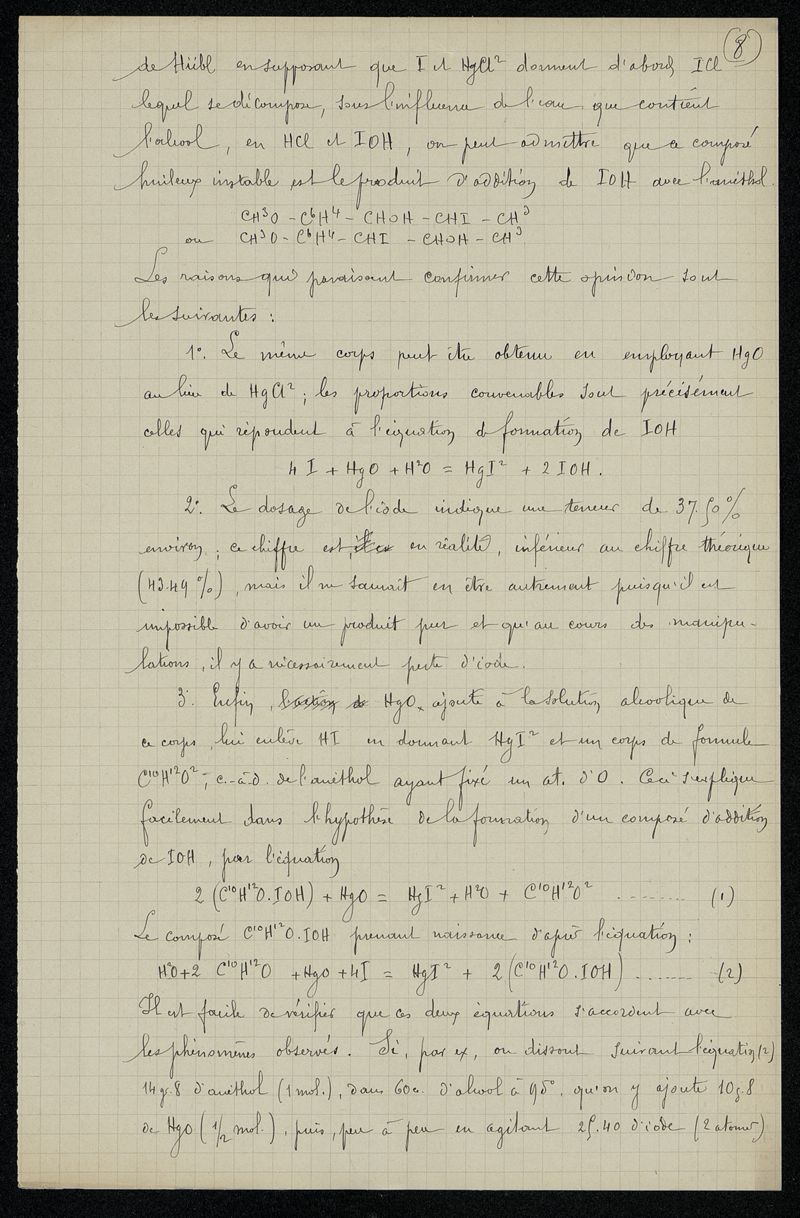 8
de Hübl en supposant que I et HgCl² donnent d'abord ICl
lequel se décompose, sous l'influence de l'eau que contient
l'alcool, en HCl et IOH, on peut admettre que ce composé
huileux instable est le produit d'addition de IOH avec l'anéthol.
CH³O - C⁶H⁴ - CHOH - CHI - CH³
ou CH³O - C⁶H⁴ - CHI - CHOH - CH³
Les raisons qui paraissent confirmer cette opinion sont
les suivantes :
1°. Le même corps peut être obtenu en employant HgO
au lieu de HgCl² ; les proportions convenables sont précisément
celles qui répondent à l'équation de formation de IOH
4 I + HgO + H²O = HgI² + 2 IOH.
2°. Le dosage de l'iode indique une teneur de 37.50 %
environ ; ce chiffre est, en réalité, inférieur au chiffre théorique
(43.49 %), mais il ne saurait en être autrement puisqu'il est
impossible d'avoir un produit pur et qu'au cours des manipu-
lations, il y a nécessairement perte d'iode.
3°. Enfin, l'action de HgO, ajouté à la solution alcoolique de
ce corps, lui enlève HI en donnant HgI² et un corps de formule
C¹⁰H¹²O², c.-à-d. de l'anéthol ayant fixé un at. d'O. Ceci s'explique
facilement dans l'hypothèse de la formation d'un composé d'addition
de IOH, par l'équation
2 (C¹⁰H¹²O.IOH) + HgO = HgI² + H²O + C¹⁰H¹²O² ........ (1)
Le composé C¹⁰H¹²O.IOH prenant naissance d'après l'équation :
H²O + 2 C¹⁰H¹²O + HgO + 4I = HgI² + 2 (C¹⁰H¹²O.IOH) ....... (2)
Il est facile de vérifier que ces deux équations s'accordent avec
les phénomènes observés. Si, par ex, on dissout suivant l'équation (2)
14gr.8 d'anéthol (1 mol.), dans 60cc. d'alcool à 95°, qu'on y ajoute 10g.8
de HgO (1/2 mol.), puis, peu à peu en agitant 25.40 d'iode (2 atomes)